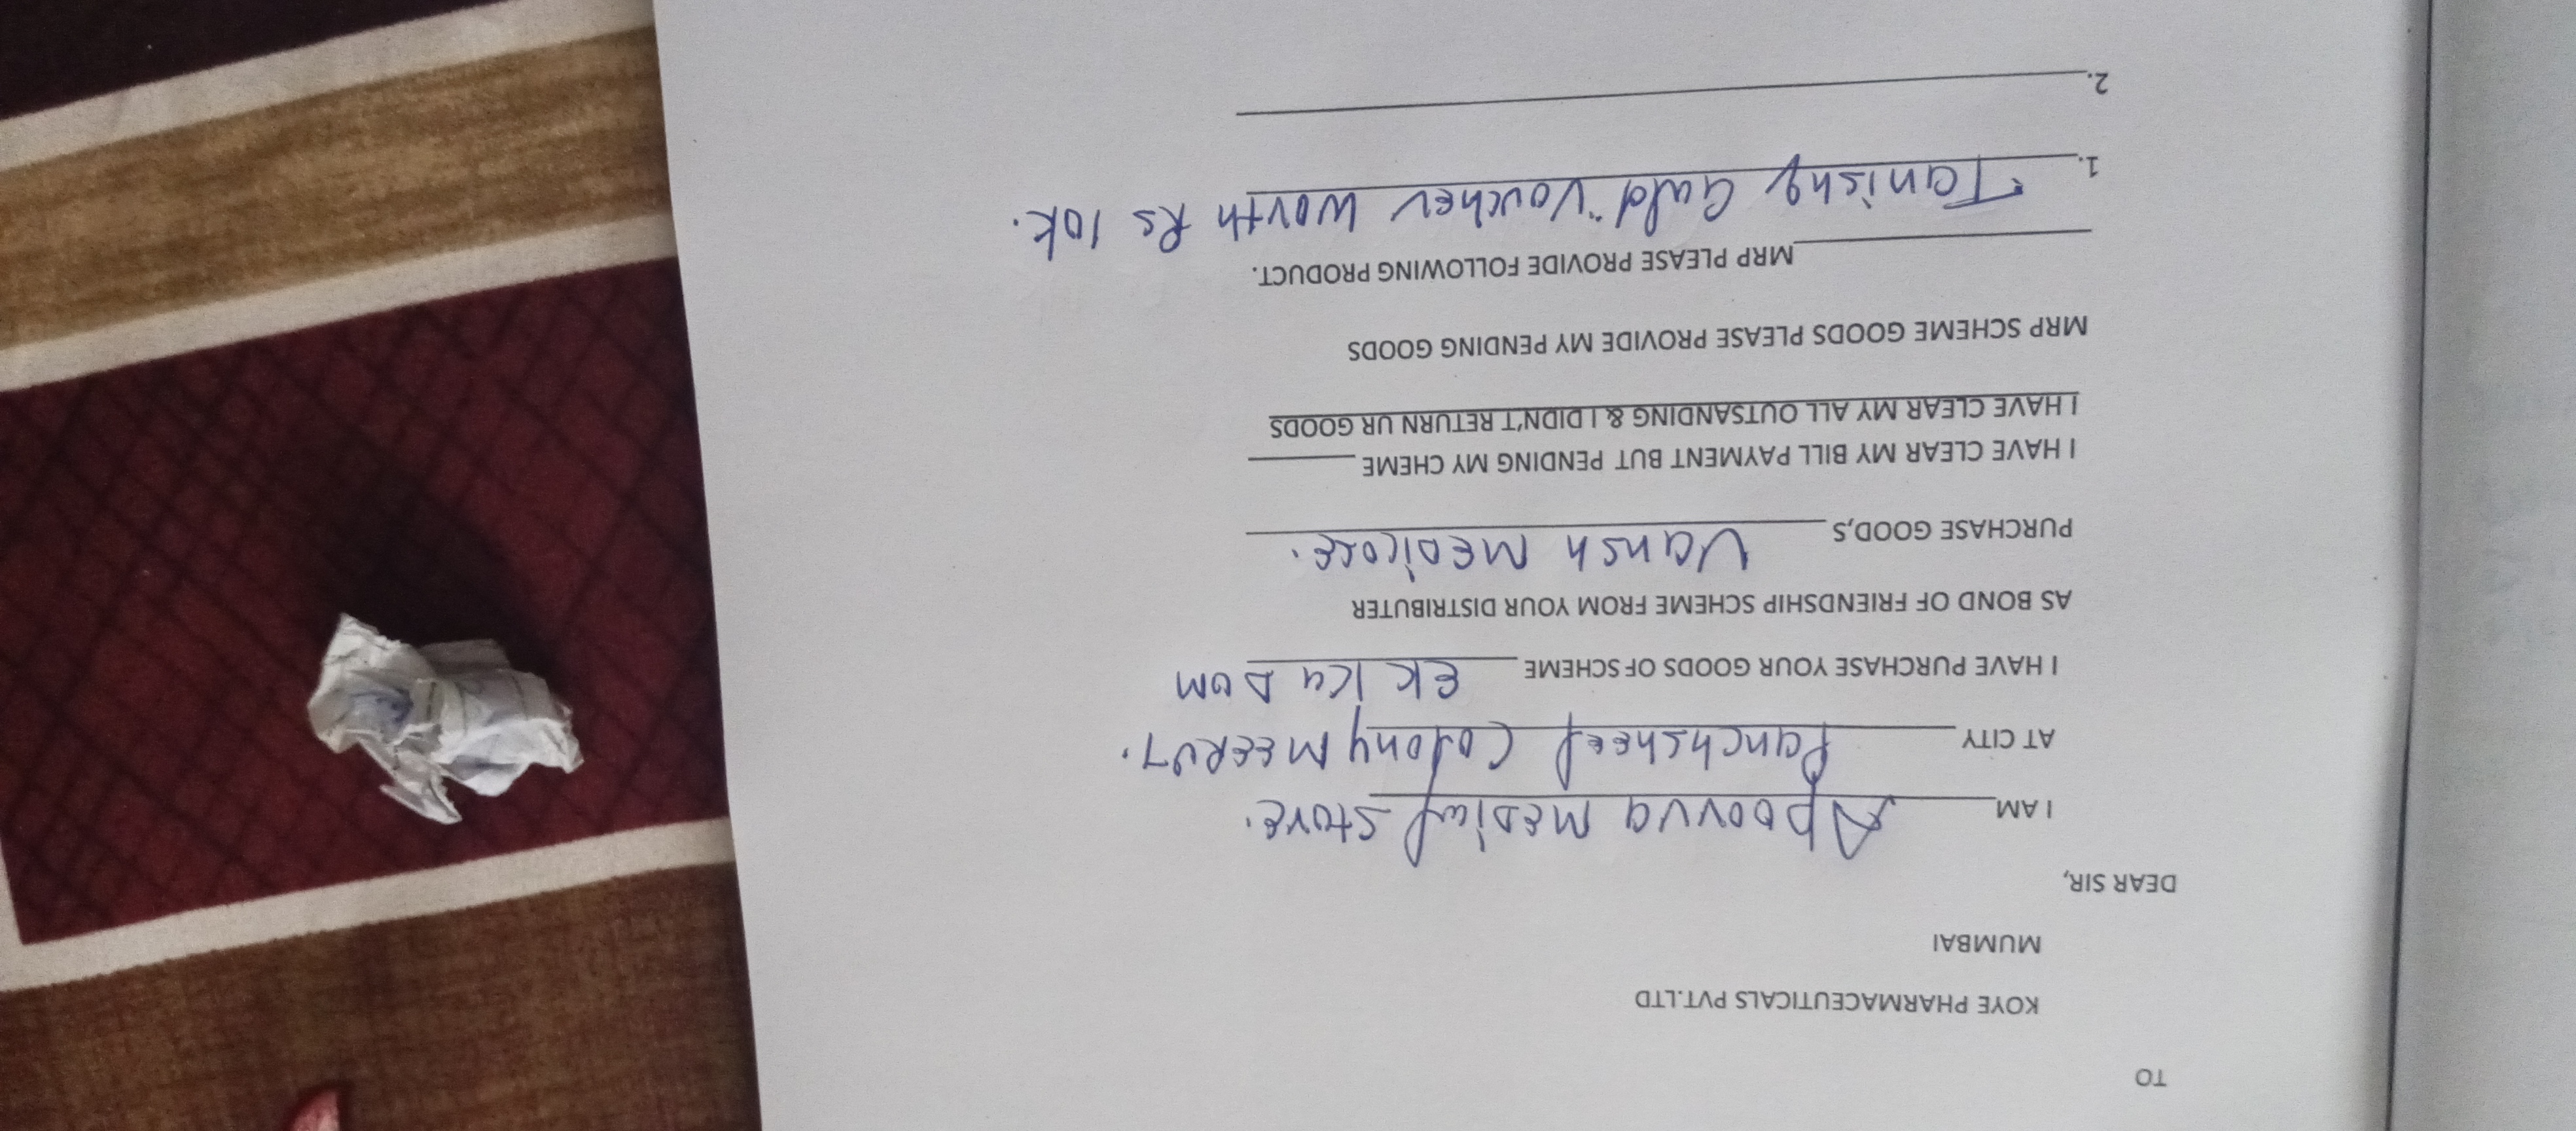 TO
KOYE PHARMACEUTICALS PVT.LTD
MUMBAI
DEAR SIR,
I AM Apoorva MEDical store.
AT CITY Panchsheel Colony MEERUT.
I HAVE PURCHASE YOUR GOODS OF SCHEME EK Ka DUM
AS BOND OF FRIENDSHIP SCHEME FROM YOUR DISTRIBUTER
PURCHASE GOOD,S Vansh MEDicose.
I HAVE CLEAR MY BILL PAYMENT BUT PENDING MY CHEME
I HAVE CLEAR MY ALL OUTSANDING & I DIDN'T RETURN UR GOODS
MRP SCHEME GOODS PLEASE PROVIDE MY PENDING GOODS
MRP PLEASE PROVIDE FOLLOWING PRODUCT.
1. Tanishq Gold Voucher worth Rs 10k.
2.